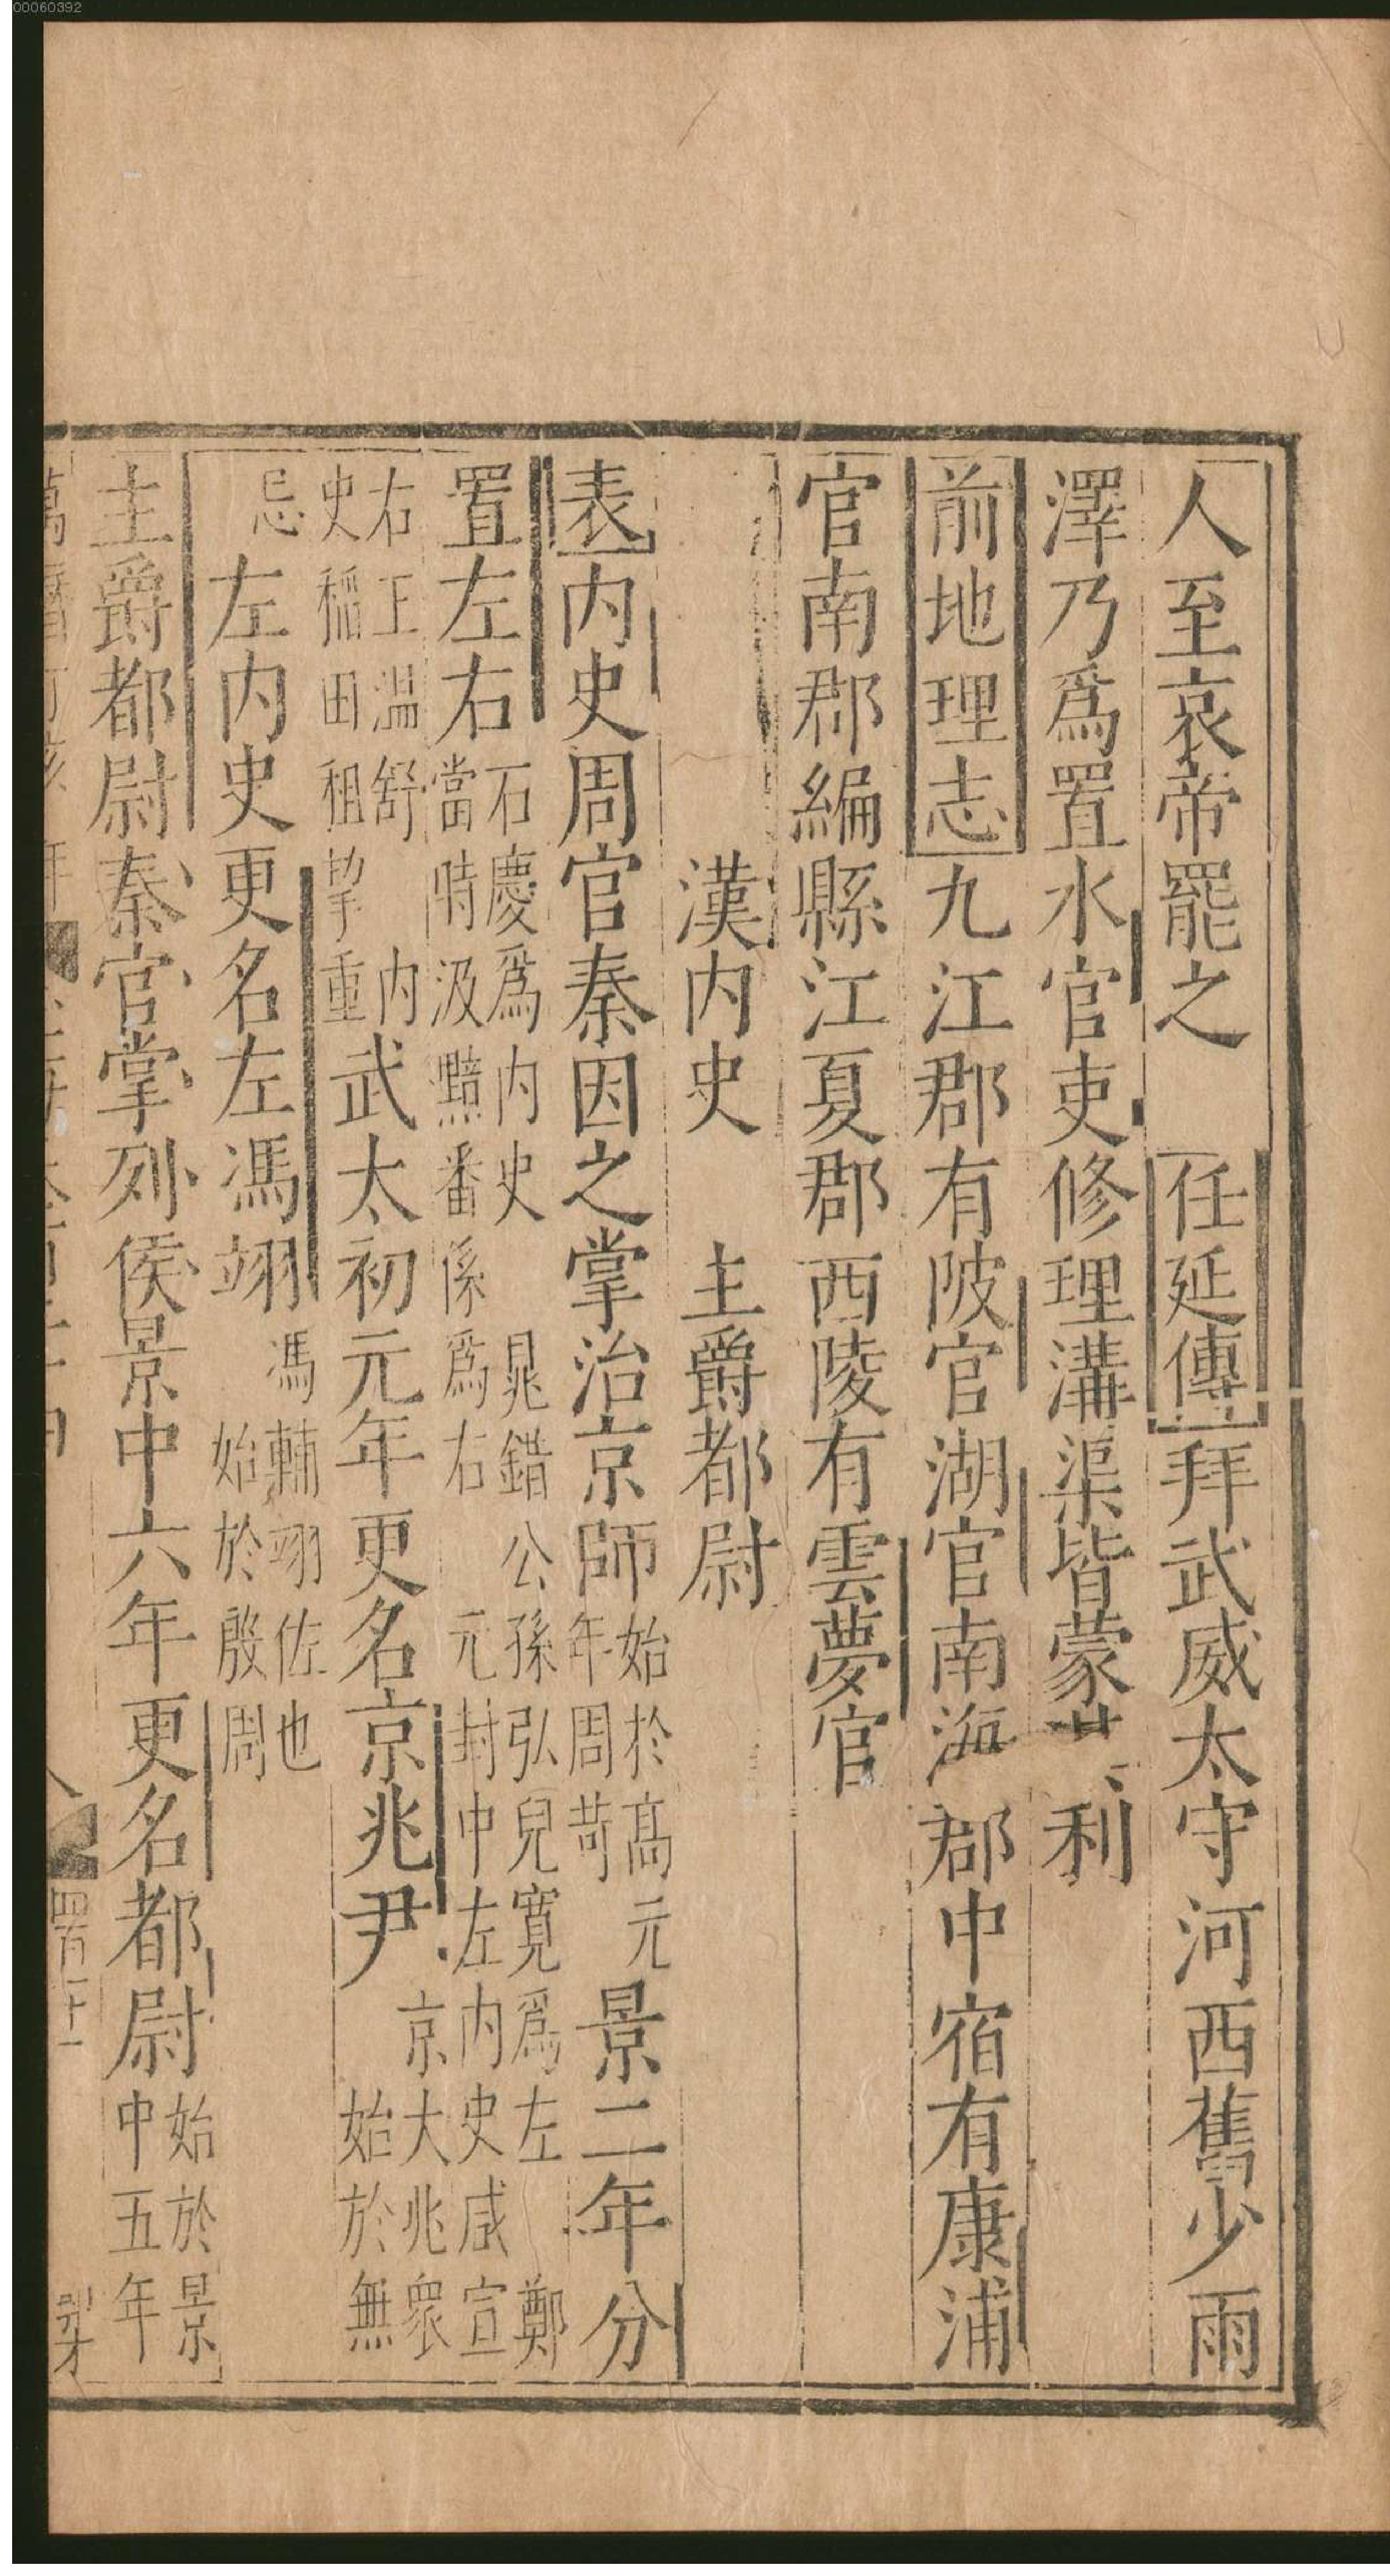 00060392
人至哀帝罷之　任延傳拜武威太守河西舊少雨
澤乃爲置水官吏修理溝渠皆蒙利
前地理志九江郡有陂官湖官南海郡中宿有康浦
官南郡編縣江夏郡西陵有雲夢官
漢内史　主爵都尉
表内史周官秦因之掌治京師始於高元年周苛景二年分
置左右石慶爲内史　晁錯　公孫弘兒寬爲左　鄭當時汲黯番係爲右　元封中左内史咸宣
右正温舒　内史稲田租挈重武太初元年更名京兆尹京大兆衆始於無
忌左内史更名左馮翊馮輔翊佐也始於殷周
主爵都尉秦官掌列侯景中六年更名都尉始於景中五年